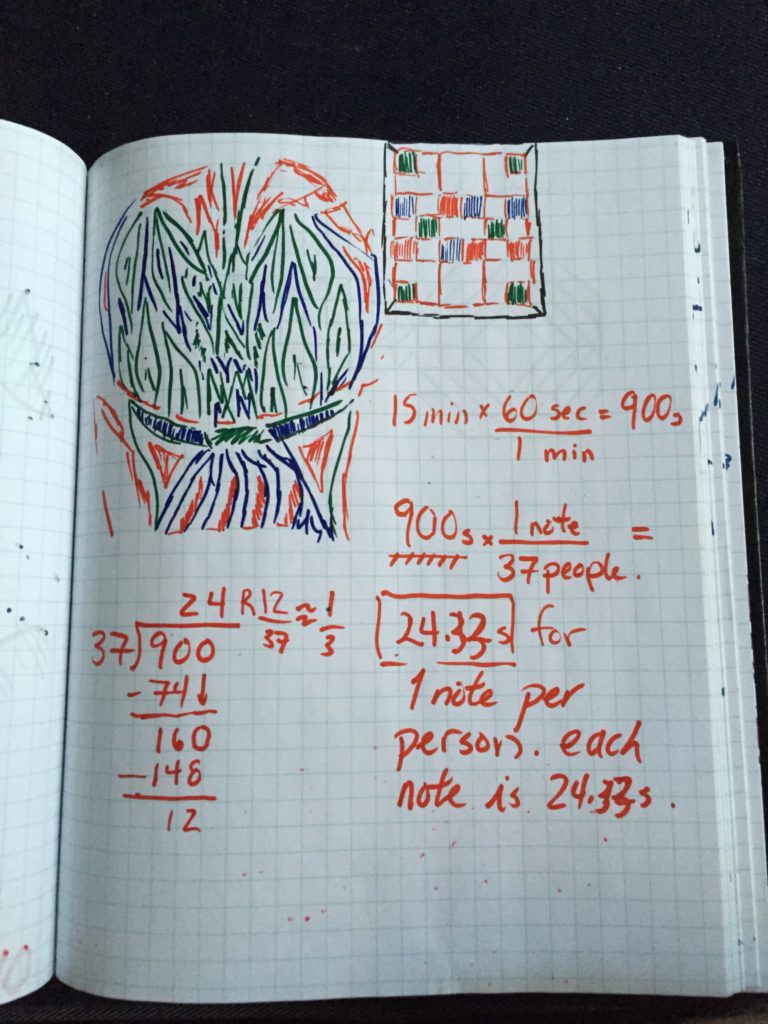 15 min × 60 sec = 900s
1 min
900s × 1 note =
37 people.
24.33s for
1 note per
person. each
note is 24.33s.
24 R12 ≈ 1
37 3
37)900
-74↓
160
-148
12